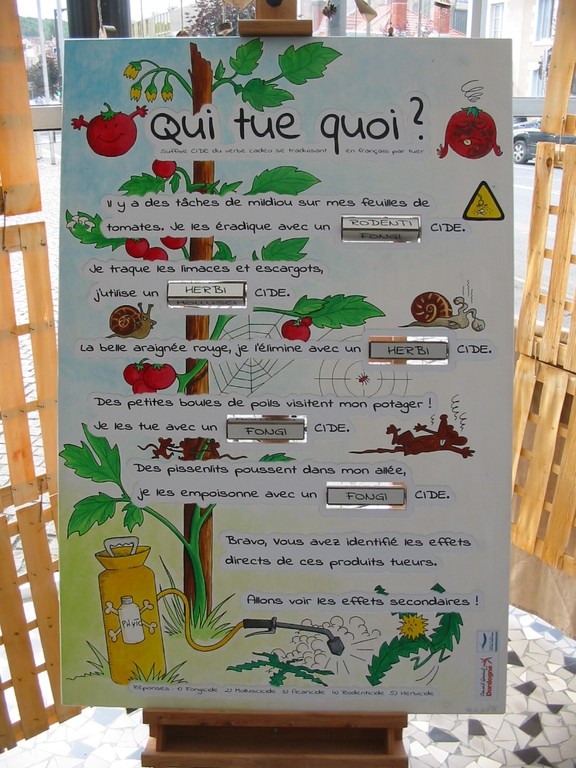 Qui tue quoi ?
Suffixe CIDE du verbe cadeo se traduisant en français par tuer
Il y a des tâches de mildiou sur mes feuilles de
tomates. Je les éradique avec un RODENTI CIDE.
FONGI
Je traque les limaces et escargots,
j'utilise un HERBI CIDE.
MOLLUSCI
La belle araignée rouge, je l'élimine avec un HERBI CIDE.
Des petites boules de poils visitent mon potager !
Je les tue avec un FONGI CIDE.
Des pissenlits poussent dans mon allée,
je les empoisonne avec un FONGI CIDE.
Bravo, vous avez identifié les effets
directs de ces produits tueurs.
Allons voir les effets secondaires !
PHYTO
Réponses : 1) Fongicide 2) Molluscicide 3) Acaricide 4) Rodenticide 5) Herbicide
Dordogne